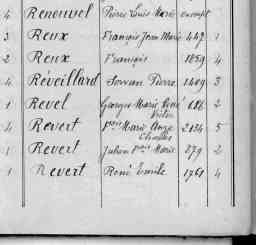 4 Renouvel Pierre Louis Marie exempt
3 Reux François Jean Marie 442 1
2 Reux François 1859 4
4 Réveillard Servan Pierre 1409 3
1 Revel Georges Marie René 616 2
Victor
4 Revert Fois Marie Ange 2124 5
Charles
1 Revert Julien Fois Marie 279 2
1 Revert René Emile 1761 4